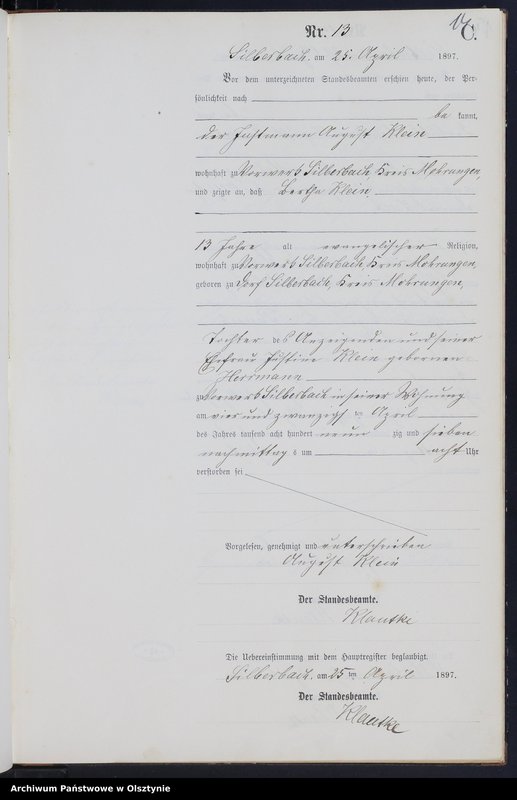 Nr. 13
C.
Silberbach, am 25. April 1897.
Vor dem unterzeichneten Standesbeamten erschien heute, der Per-
sönlichkeit nach
be kannt,
der Instmann August Klein
wohnhaft zu Vorwerk Silberbach, Kreis Mohrungen,
und zeigte an, daß Bertha Klein
13 Jahre alt evangelischer Religion,
wohnhaft zu Vorwerk Silberbach, Kreis Mohrungen,
geboren zu Dorf Silberbach, Kreis Mohrungen,
Tochter des Anzeigenden und seiner
Ehefrau Justine Klein gebornen
Herrmann
zu Vorwerk Silberbach in seiner Wohnung
am vier und zwanzigsten April
des Jahres tausend acht hundert neun zig und sieben
nachmittag s um acht Uhr
verstorben sei
Vorgelesen, genehmigt und unterschrieben
August Klein
Der Standesbeamte.
Klautke
Die Uebereinstimmung mit dem Hauptregister beglaubigt.
Silberbach, am 25 ten April 1897.
Der Standesbeamte.
Klautke
Archiwum Państwowe w Olsztynie